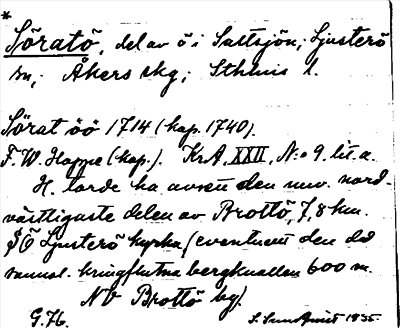 *
Söratö, del av ö i Saltsjön; Ljusterö
sn, Åkers skg; Sthlms l.
Sörat öö 1714 (kop. 1740).
F. W. Hoppe (kop.). KrA, XXII, N:o 9. lit. a.
H. torde ha avsett den nuv. nord-
västligaste delen av Brottö, 7,8 km.
SÖ Ljusterö kyrka (eventuellt den då
sannol. kringflutna bergknallen 600 m.
NV Brottö by).
G.76. S. 1935